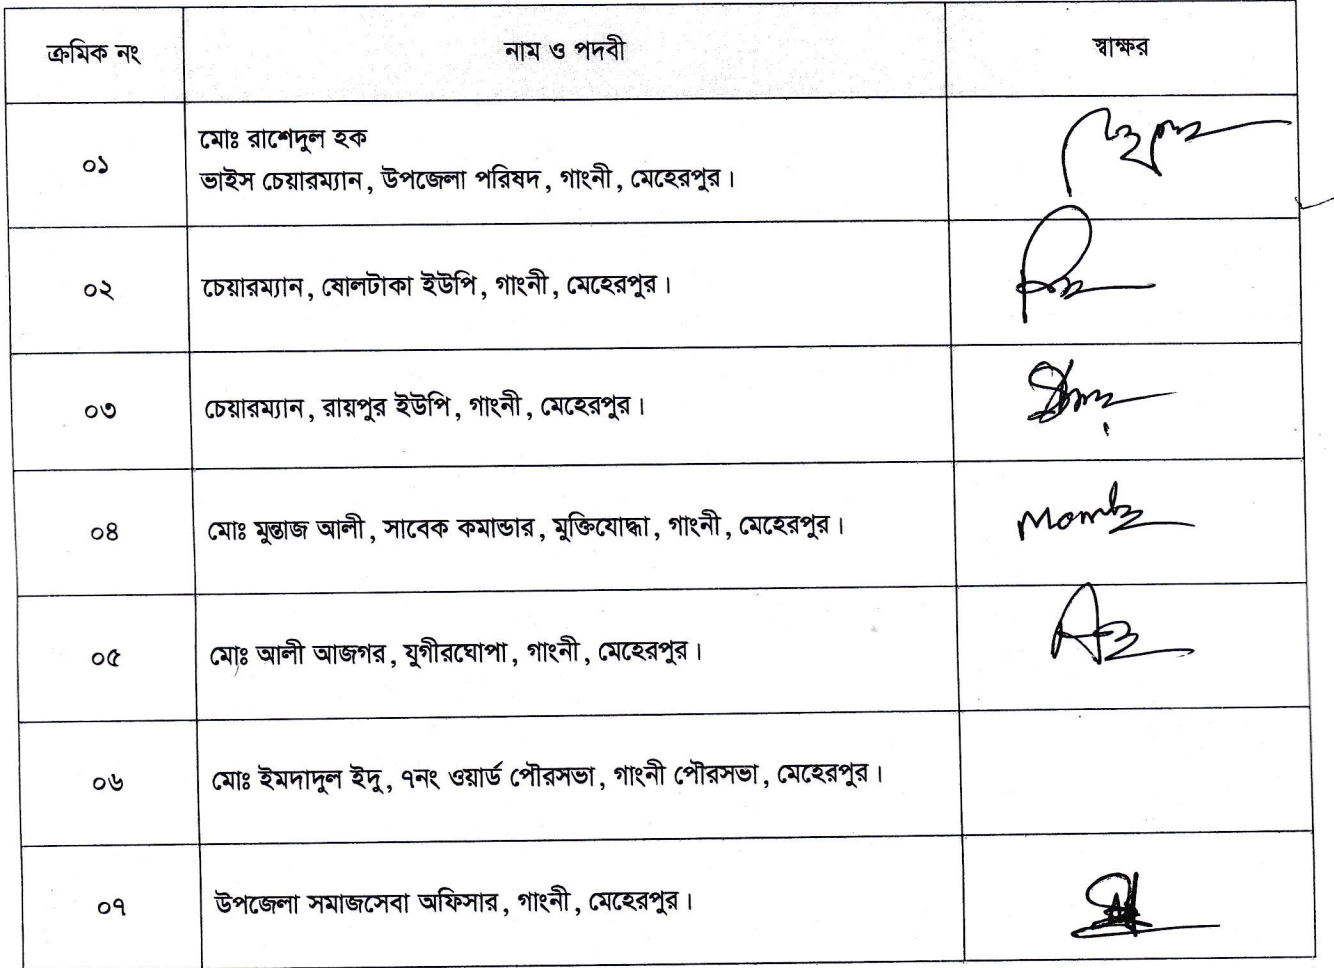 ক্রমিক নং নাম ও পদবী স্বাক্ষর
০১ মোঃ রাশেদুল হক
ভাইস চেয়ারম্যান, উপজেলা পরিষদ, গাংনী, মেহেরপুর।
০২ চেয়ারম্যান, ষোলটাকা ইউপি, গাংনী, মেহেরপুর।
০৩ চেয়ারম্যান, রায়পুর ইউপি, গাংনী, মেহেরপুর।
০৪ মোঃ মুন্তাজ আলী, সাবেক কমান্ডার, মুক্তিযোদ্ধা, গাংনী, মেহেরপুর।
০৫ মোঃ আলী আজগর, যুগীরঘোপা, গাংনী, মেহেরপুর।
০৬ মোঃ ইমদাদুল ইদু, ৭নং ওয়ার্ড পৌরসভা, গাংনী পৌরসভা, মেহেরপুর।
০৭ উপজেলা সমাজসেবা অফিসার, গাংনী, মেহেরপুর।